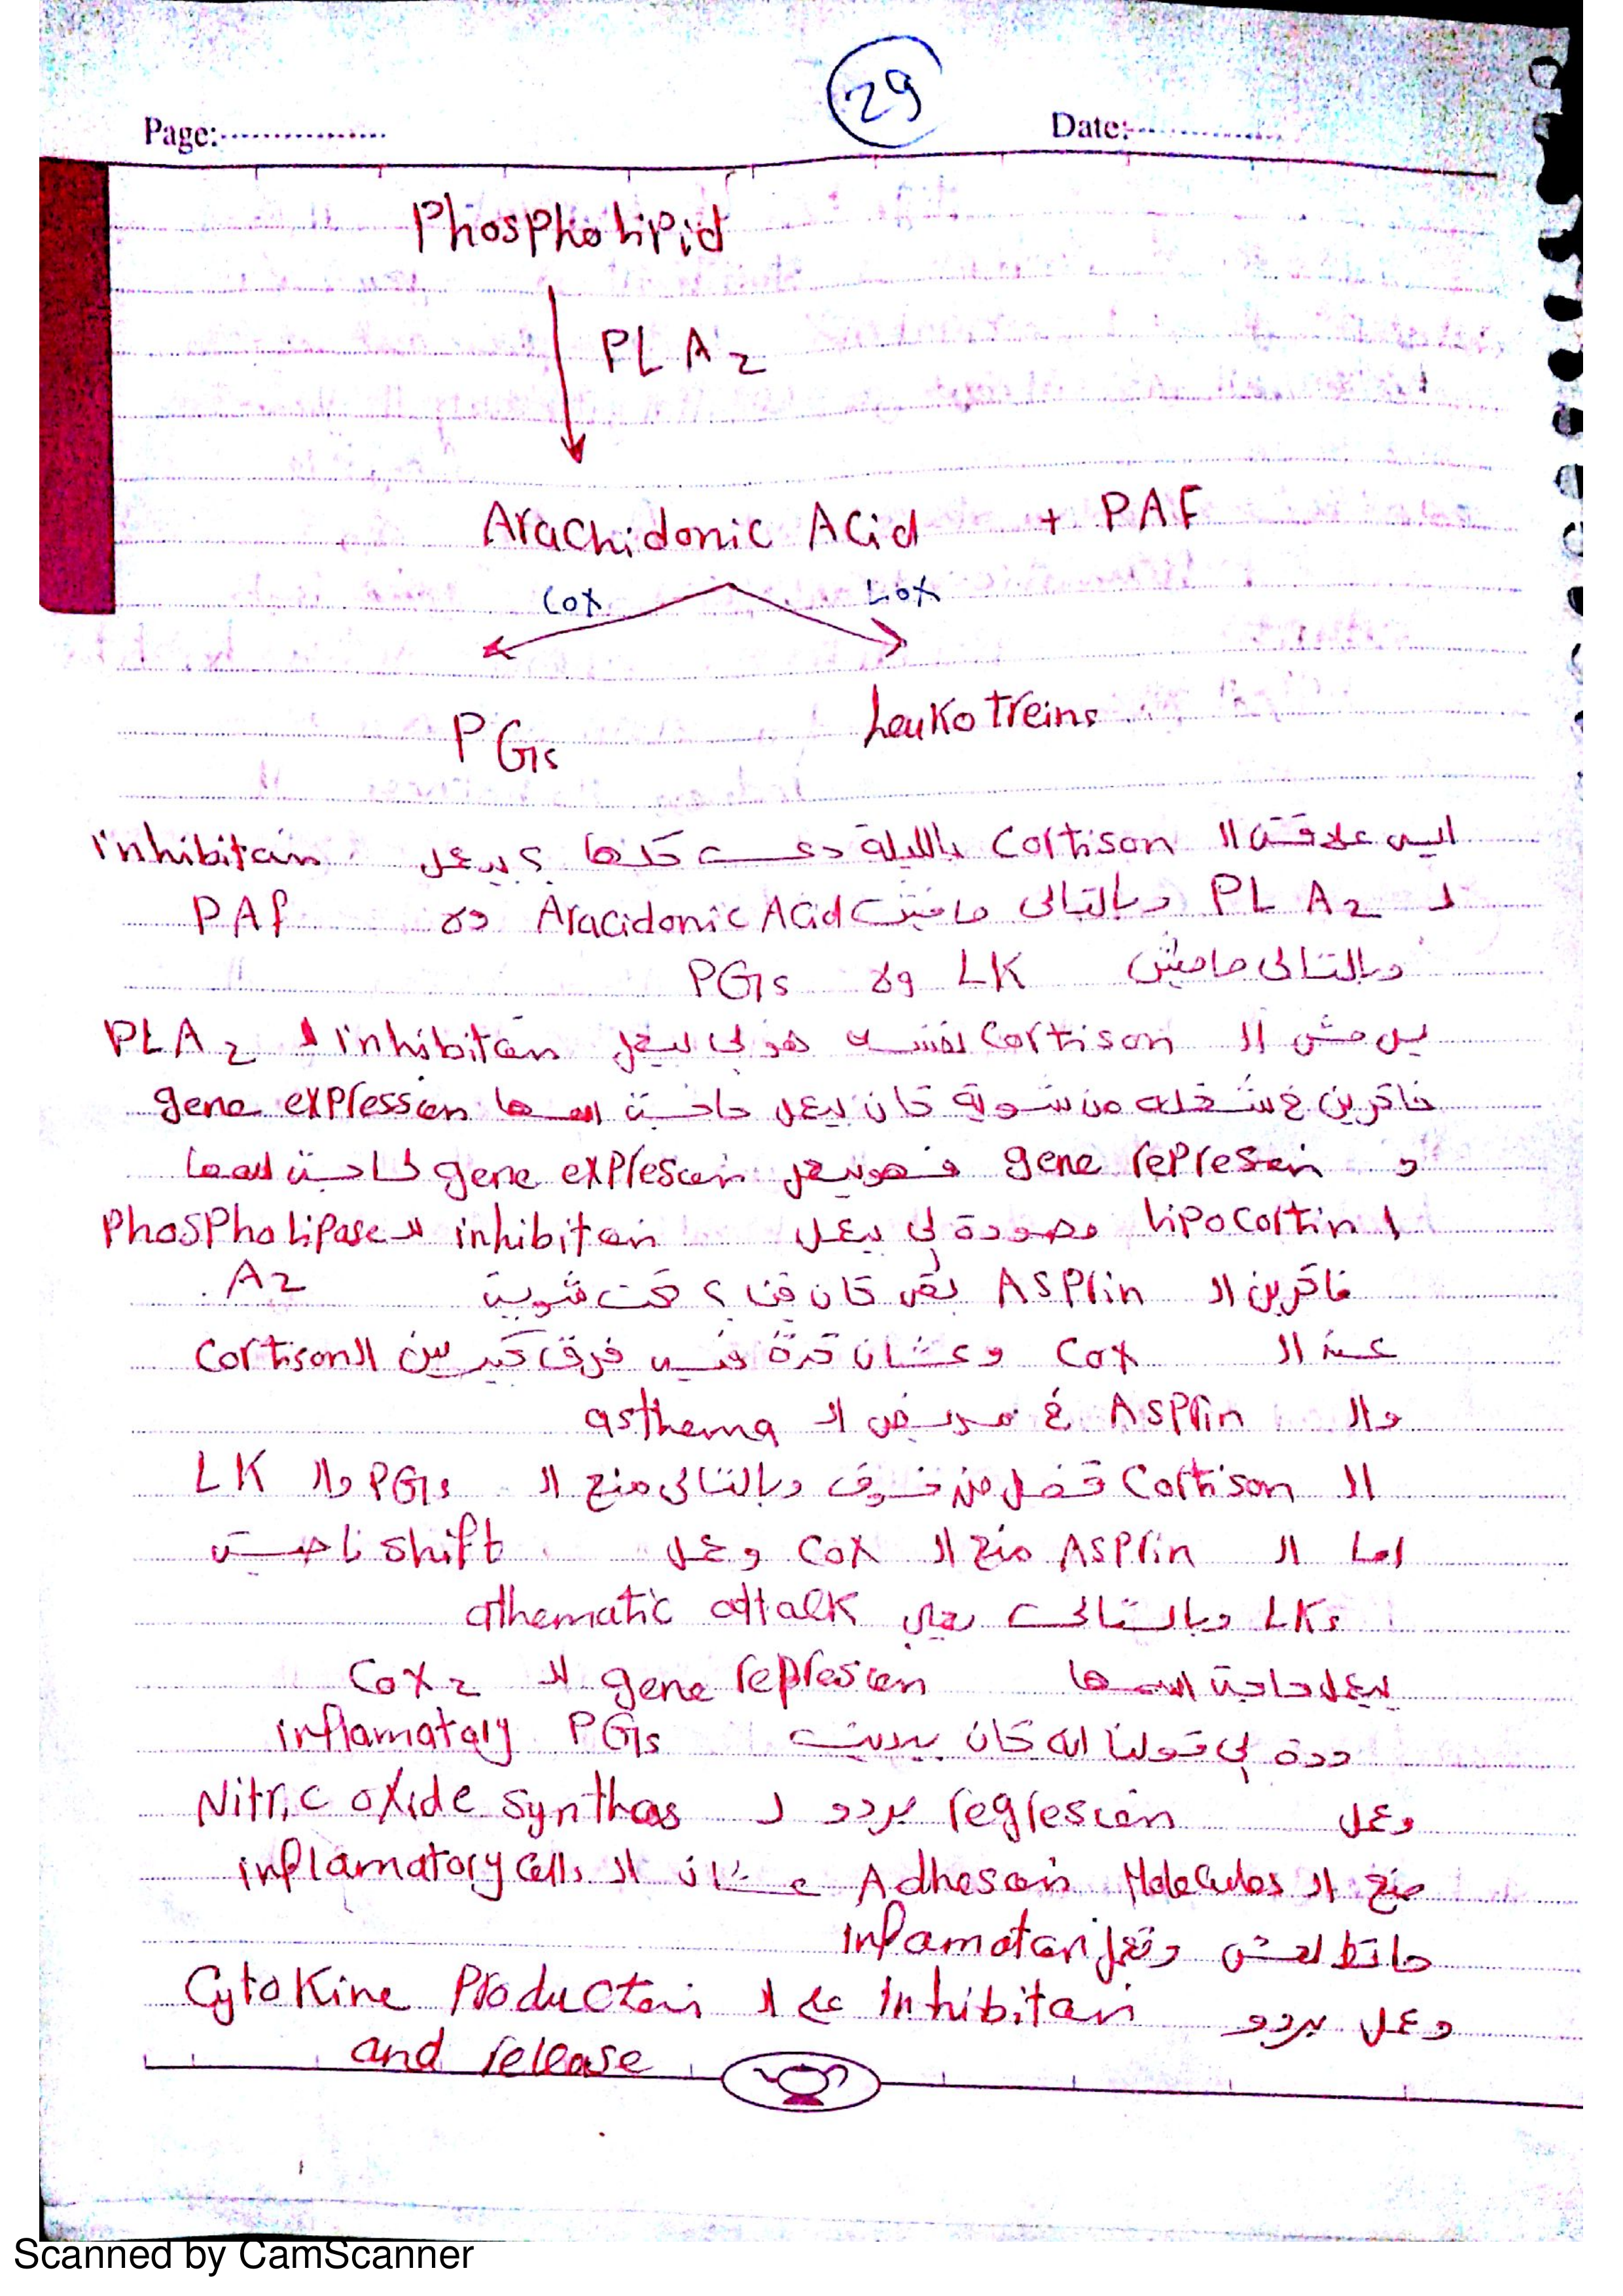 29
Page:................
Date:................
Phospholipid
PLA2
Arachidonic Acid + PAF
Cox Lox
PGs Leukotreins
ايه علاقة ال Cortison بالليلة دي كلها ؟ بيعمل inhibition
ل PL A2 وبالتالى مافيش Aracidonic Acid ولا PAF
وبالتالى مافيش LK ولا PGs
بس مش ال Cortison نفسه هو لى بيعمل inhibition ل PLA2
فاكرين شغله من شوية كان بيعمل حاجة اسمها gene expression
و gene represion فهو بيعمل gene expression لحاجة اسمها
lipocortin 1 موجودة لى بتعمل inhibition لل Phospholipase
A2
فاكرين ال Asprin بقى كان فين ؟ تحت شوية
عند ال Cox وعشان كدة فيه فرق كبير بين ال Cortison
وال Asprin في مريض ال asthema
ال Cortison قفل من فوق وبالتالى منع ال PGs وال LK
اما ال Asprin منع ال Cox وعمل shift ناحية
LKs وبالتالى يجيلى athematic attalk
بيعمل حاجة اسمها gene represion لل Cox2
ودة لى قولنا انه كان بيديني PGs inflamatory
وعمل regresion بردو ل Nitric oxide synthas
منع ال Adhesion Molecules عشان ال inflamatory cells
ماتطلعش وتعمل inflamation
وعمل بردو inhibition على ال Cytokine Production
and release
Scanned by CamScanner